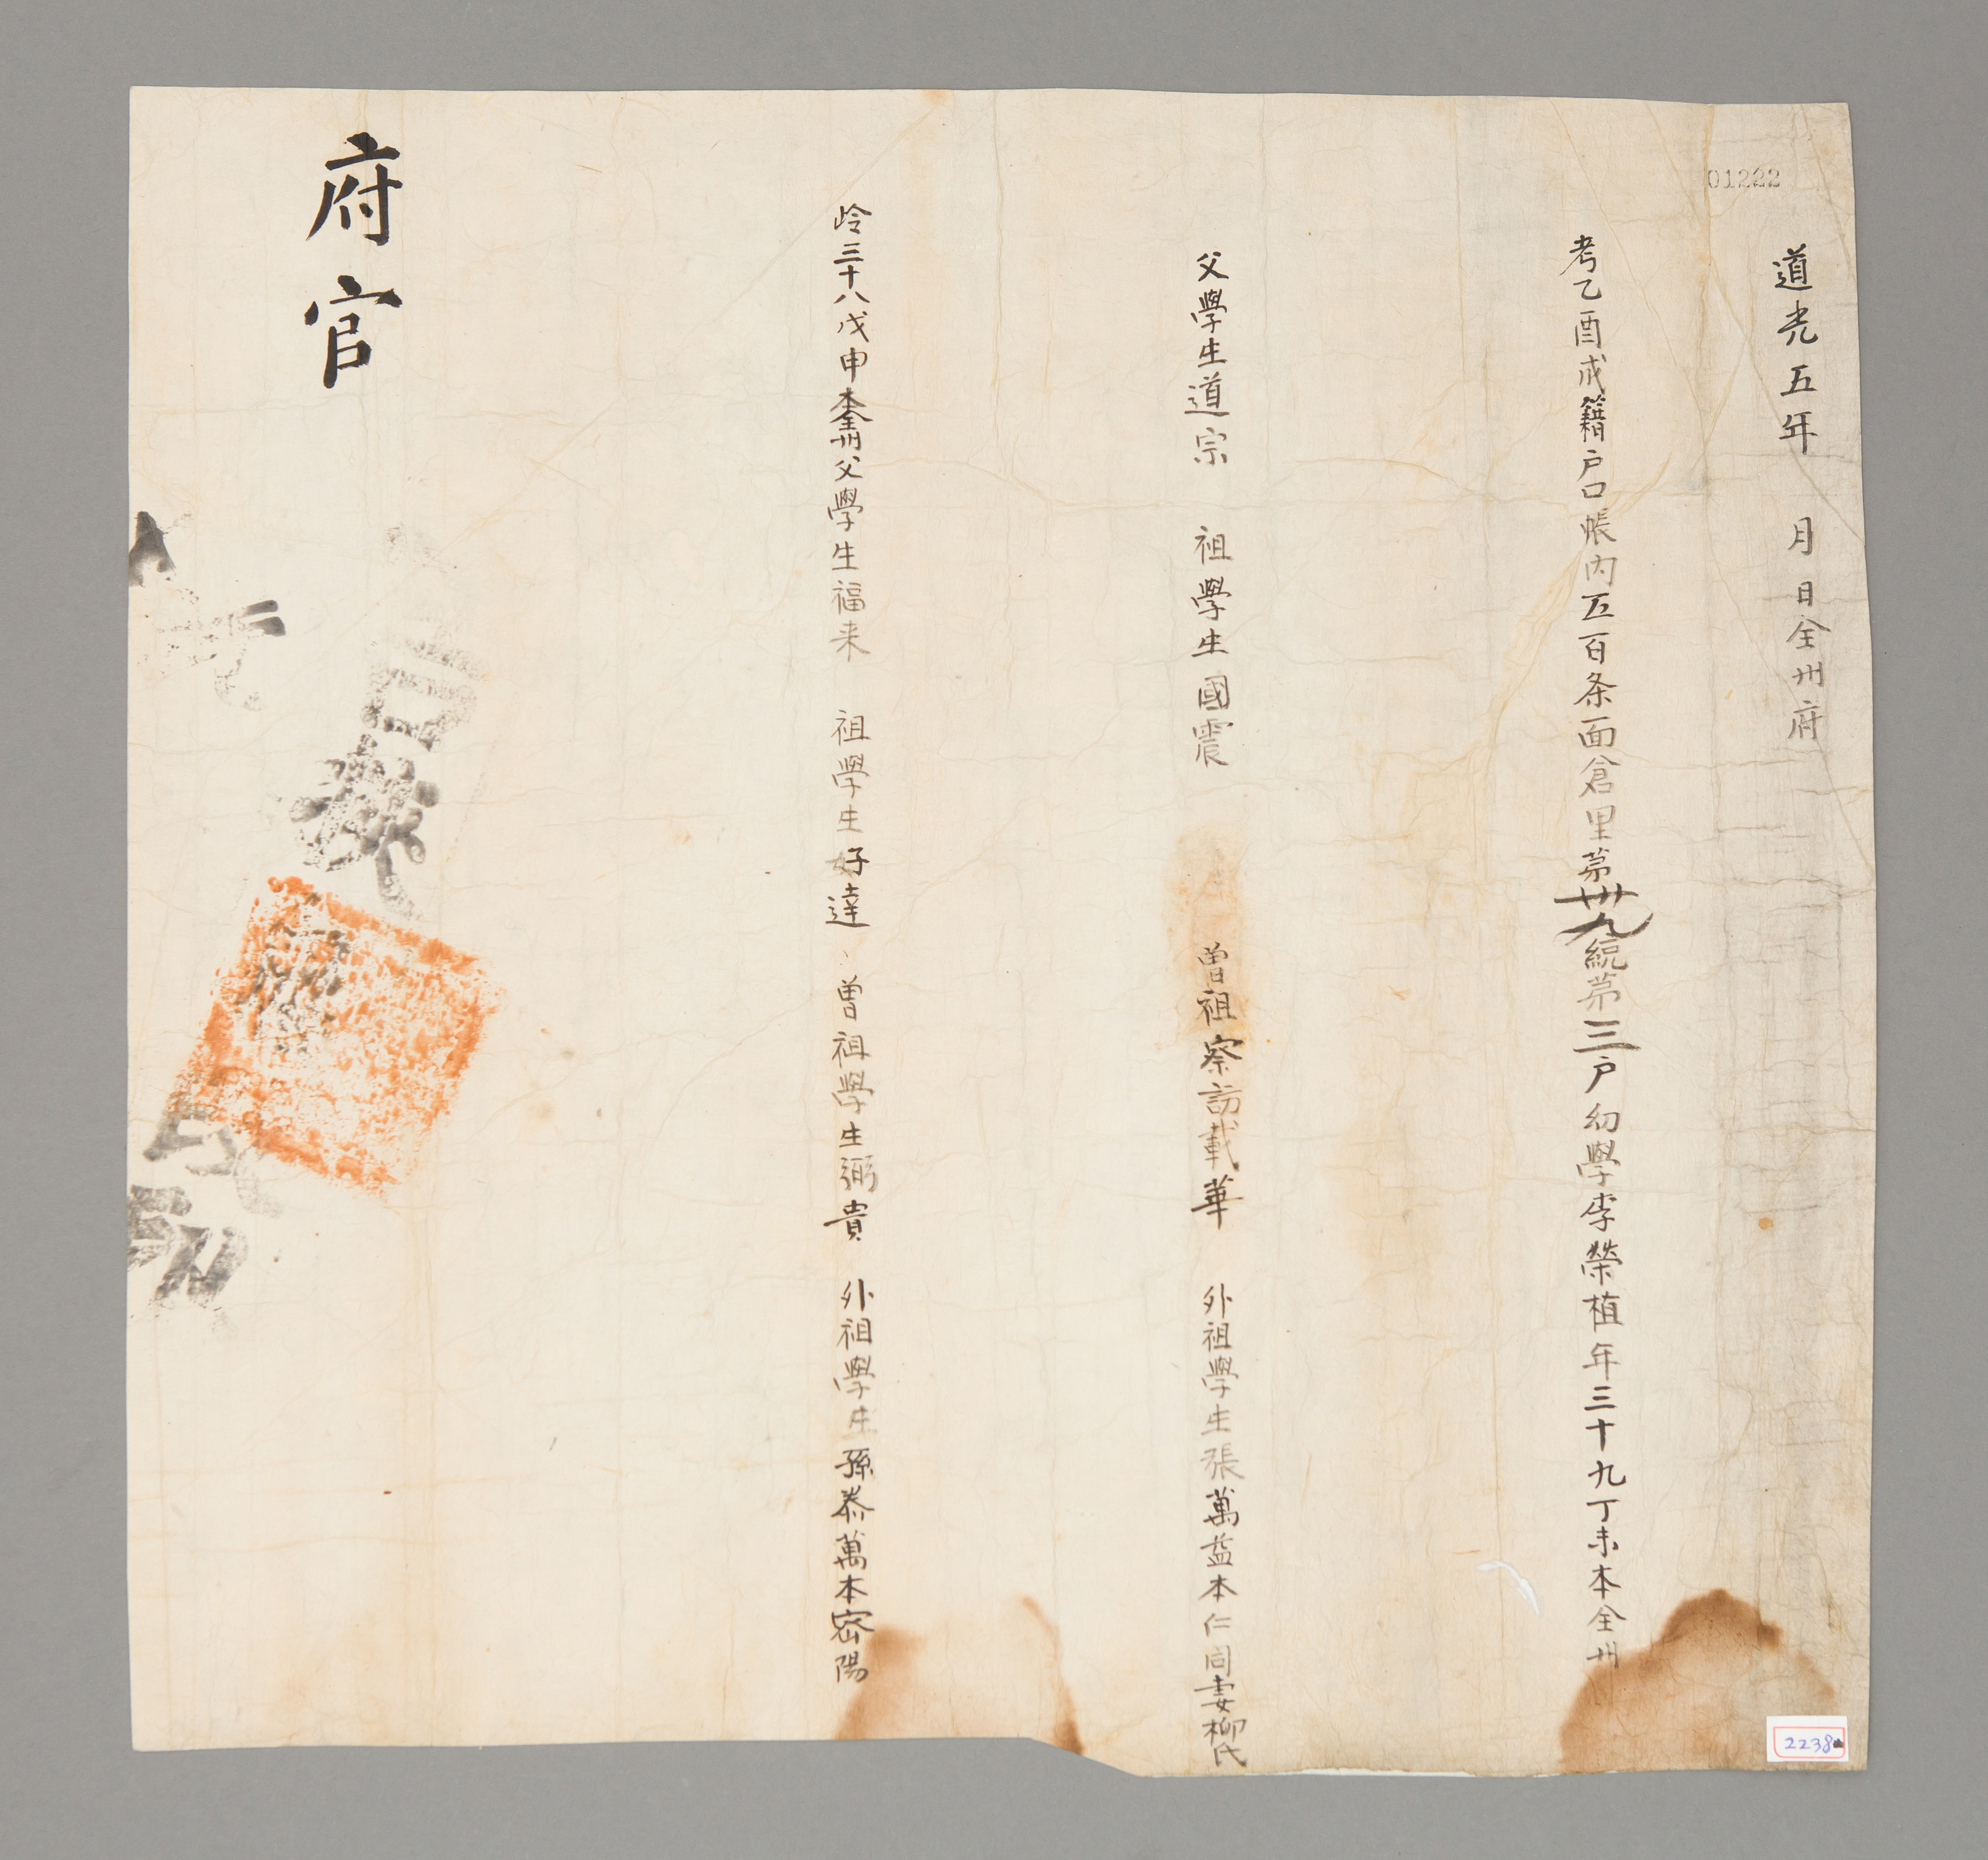 01222
道光五年 月 日全州府
考乙酉成籍户口帳內五百条面倉里苐卅九統苐三户幼學李榮植年三十九丁未本全州
父學生道宗 祖學生國震 曽祖察訪載華 外祖學生張萬益本仁同妻柳氏
岭三十八戊申本全州父學生福来 祖學生好達 曽祖學生弼貴 外祖學生孫泰萬本宻陽
府官
2238